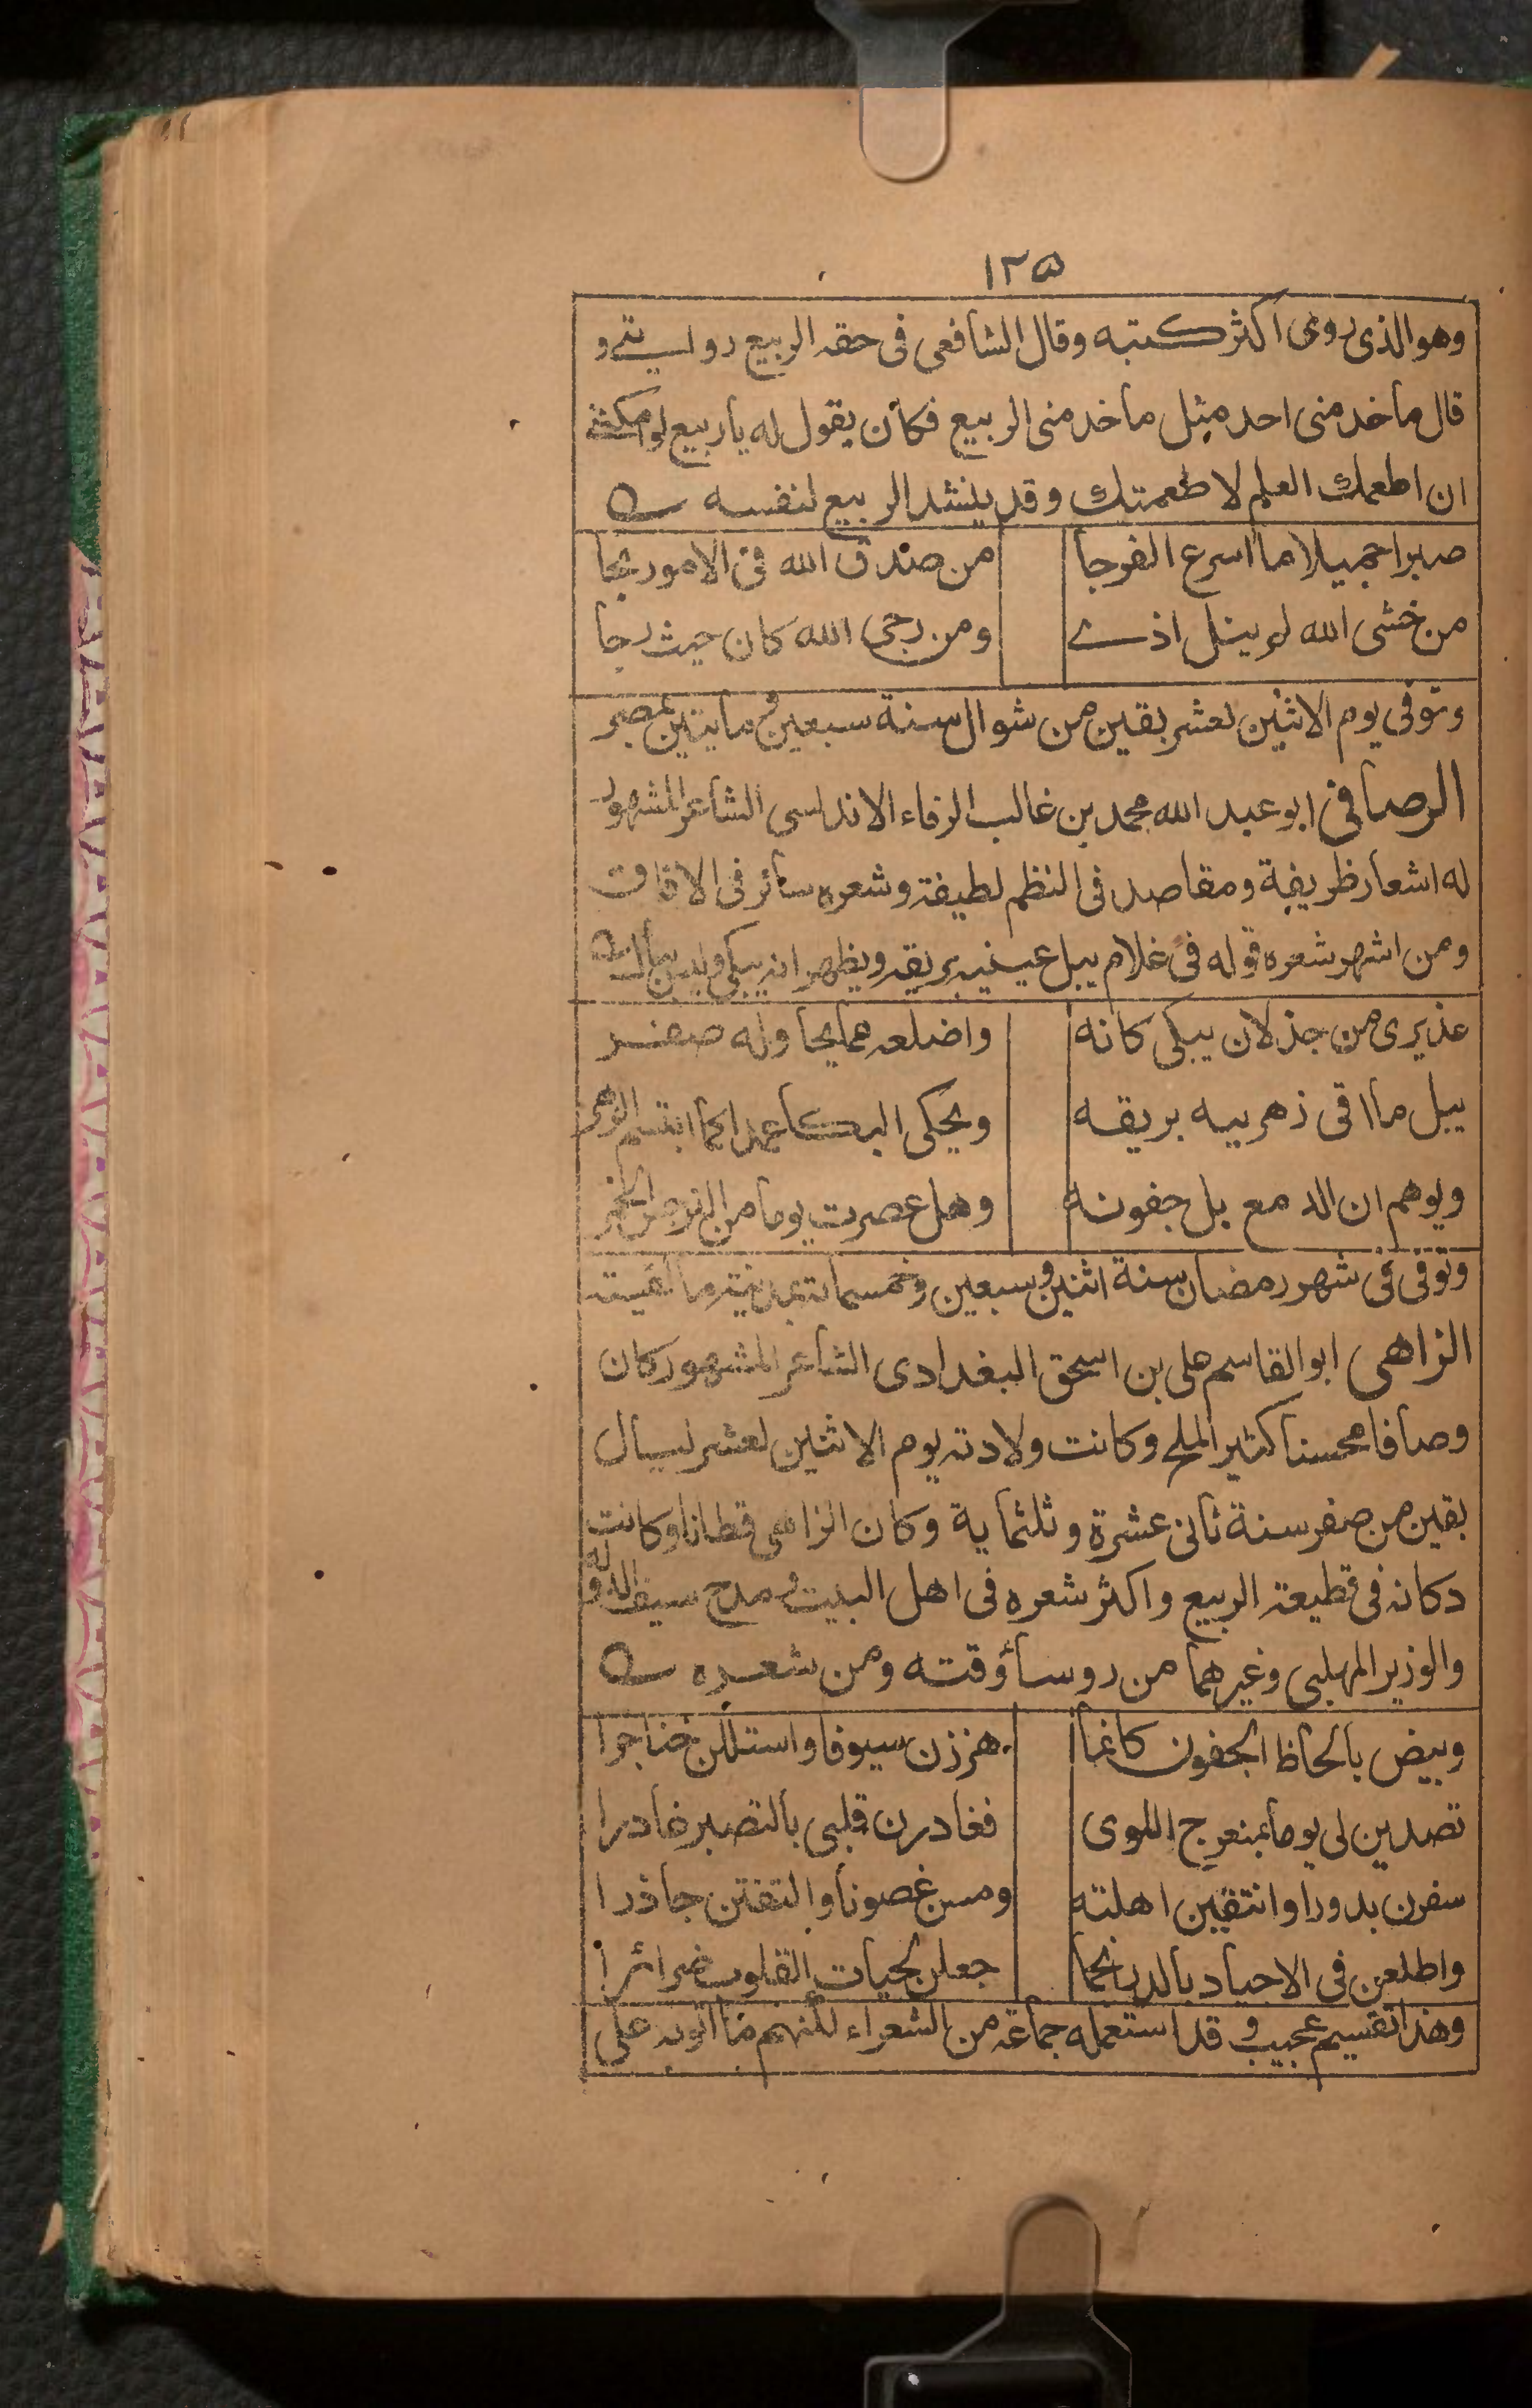 ١٢٥
وهو الذى روى اكثر كتبه وقال الشافعى فى حقه الربيع روايتى و
قال ماخدمنى احد مثل ماخدمنى الربيع فكان يقول له ياربيع لوامكننى
ان اطعمك العلم لاطعمتك وقد ينشد الربيع لنفسه
صبرا جميلا ما اسرع الفرجا من صدق الله فى الامور نجا
من خشى الله لم ينل اذى ومن رجى الله كان حيث رجا
وتوفى يوم الاثنين لعشر بقين من شوال سنة سبعين ومايتين بمصر
الرصافى ابو عبد الله محمد بن غالب الرفاء الاندلسى الشاعر المشهور
له اشعار ظريفة ومقاصد فى النظم لطيفة وشعره سائر فى الافاق
ومن اشهر شعره قوله فى غلام يبل عينيه بريقه ويظهر انه يبكى وليس بباك
عذيرى من جذلان يبكى كانه واضلعه مما يحاوله صفر
يبل ماٰقى زهريه بريقه ويحكى البكا عمدا كما ابتسم الزهر
ويوهم ان الدمع بل جفونه وهل عصرت يوما من النرجس الخمر
وتوفى فى شهر رمضان سنة اثنين وسبعين وخمسماتة بمدينة مالقيته
الزاهى ابو القاسم على بن اسحق البغدادى الشاعر المشهور كان
وصافا محسنا كثير الملح وكانت ولادته يوم الاثنين لعشر ليال
بقين من صفر سنة ثانى عشرة وثلثماية وكان الزاهى قطانا وكانت
دكانه فى قطيعة الربيع واكثر شعره فى اهل البيت ومدح سيف الدوله
والوزير المهلبى وغيرهما من روسأوقته ومن شعره
وبيض بألحاظ الجفون كانما هززن سيوفا واستللن خناجرا
تصدين لى يوما بمنعرج اللوى فغادرن قلبى بالتصبر غادرا
سفرن بدورا وانتقبن اهلته ومسن غصونا والتفتن جاذرا
واطلعن فى الاجياد بالدر انجما جعلن لحيات القلوب ضرائرا
وهذا تقسيم عجيب وقد استعمله جماعة من الشعراء لكنهم ما اتوبه على